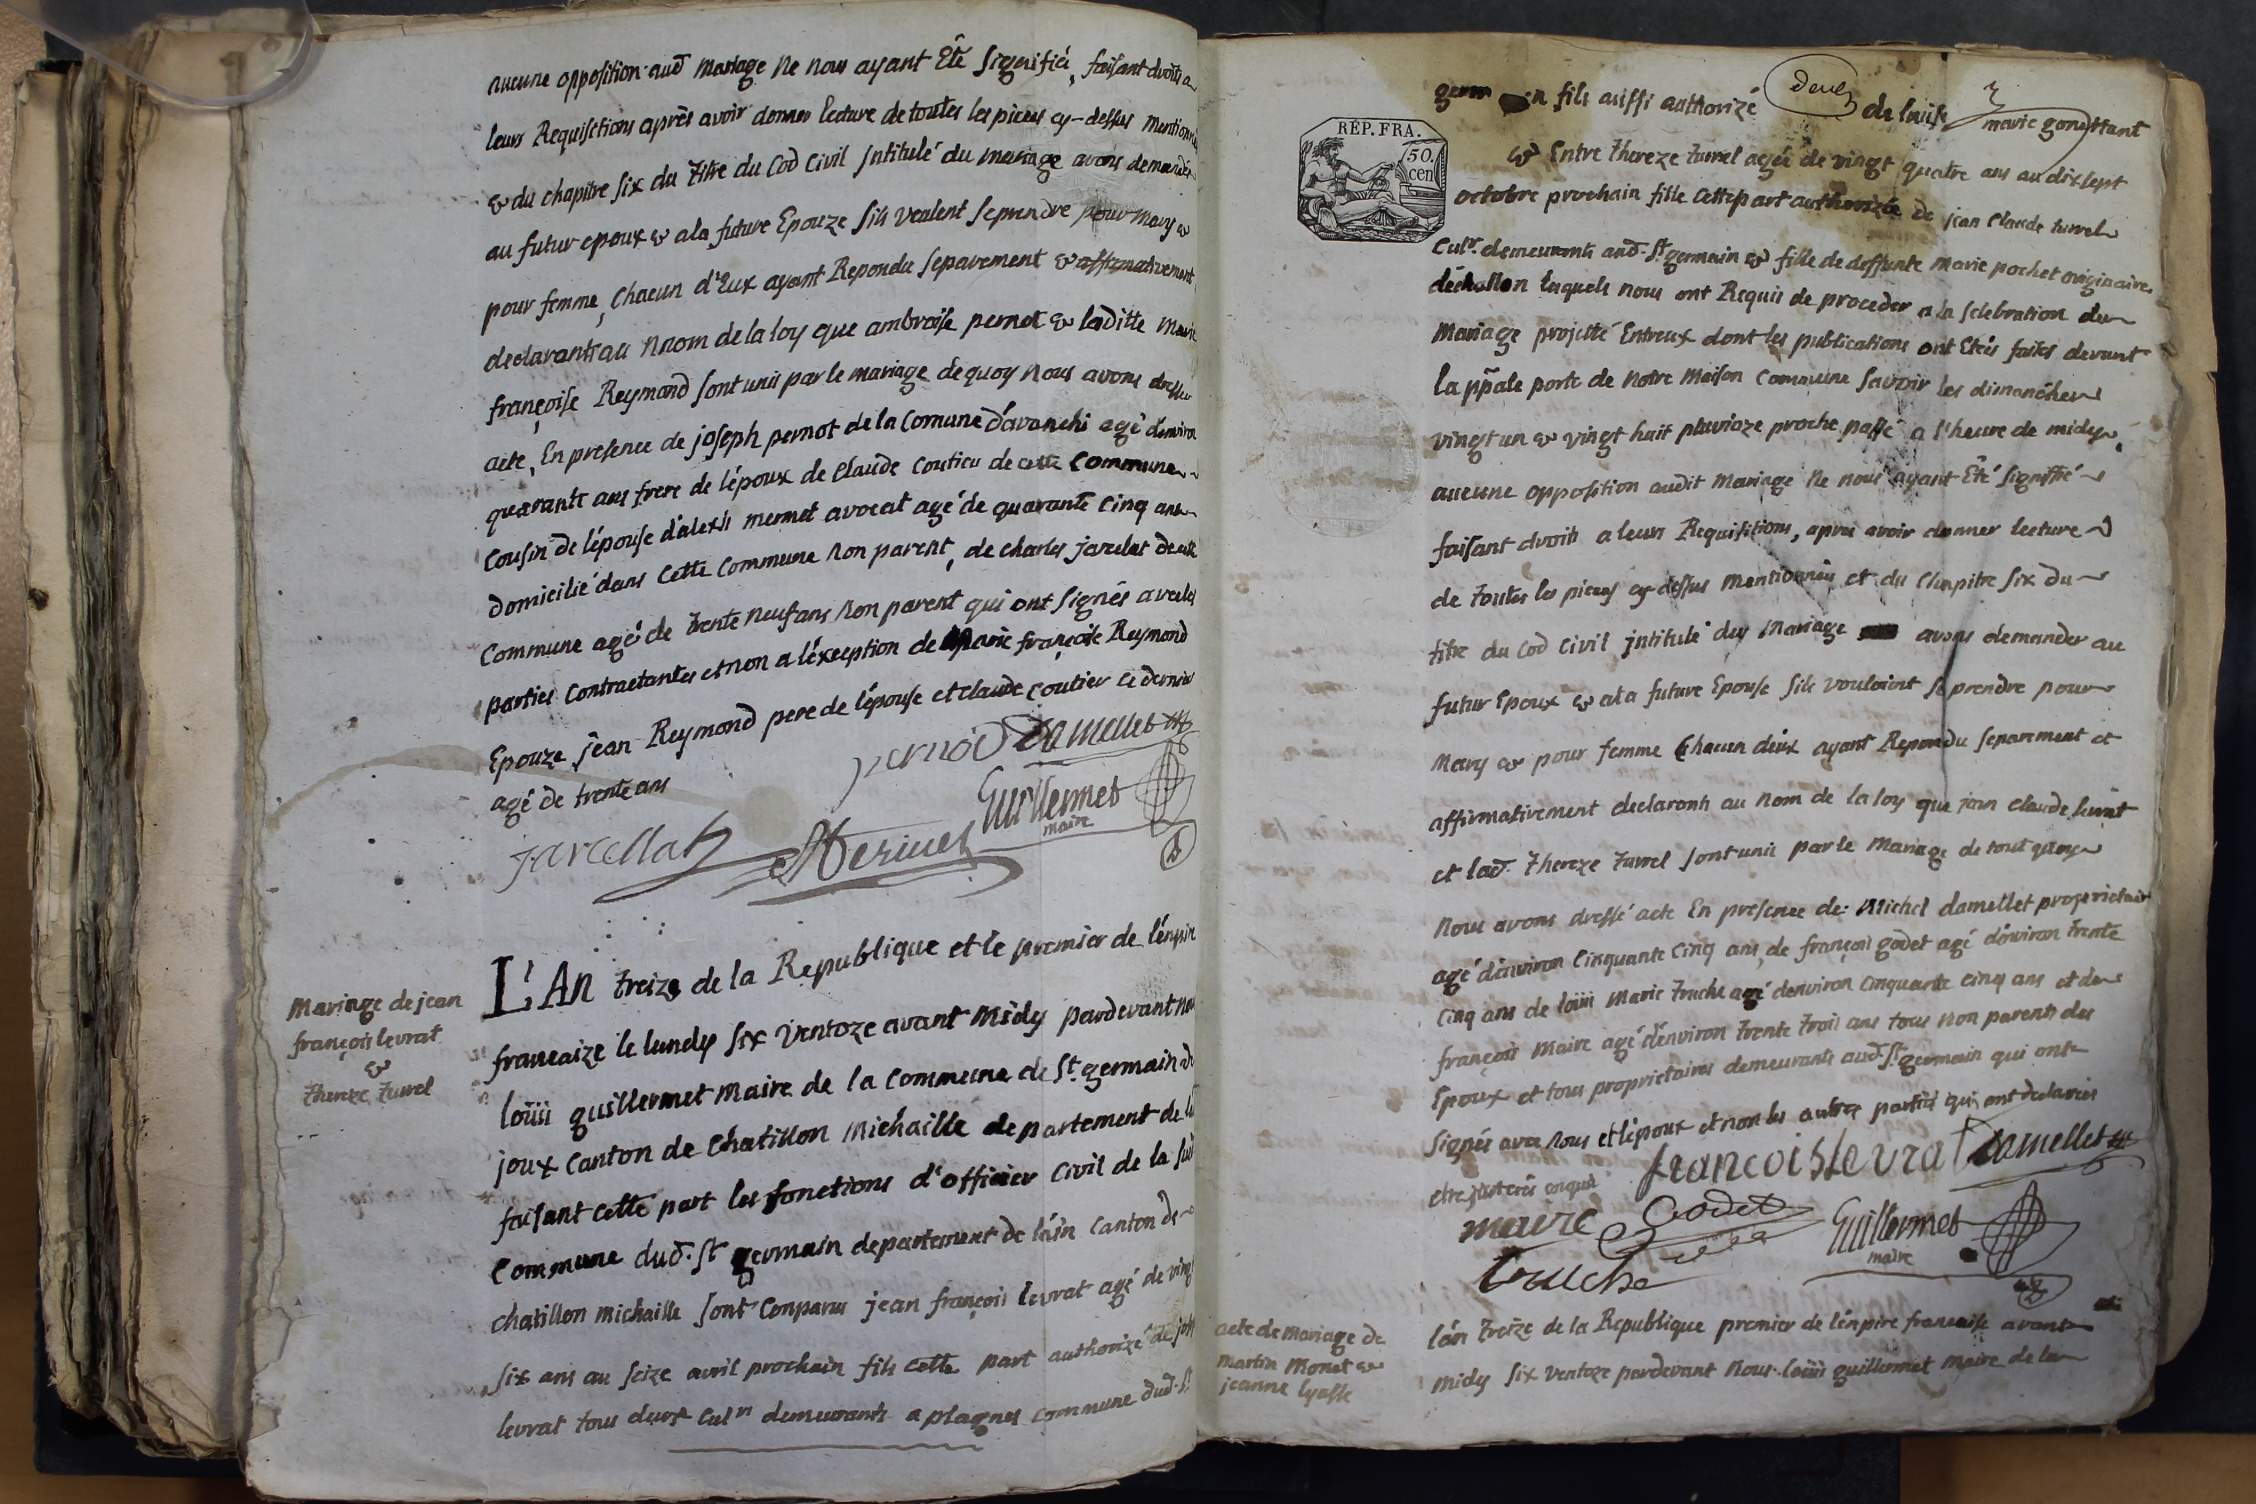 aucune opposition aud mariage ne nous ayant Eté signifié, faisant droits a
leurs Requisetions après avoir donner lecture de toutes les pieces cy-dessus mentionnés
& du chapitre six du Titre du Cod Civil Jntitulé du mariage avons demandés
au futur epoux & ala future Epouze sils veulent seprendre pour Mary &
pour femme, Chacun d'Eux ayant Repondu separement & affirmativement
declarants au Nnom de la loy que ambroise pernot & laditte Marie
françoise Reymond sont unis par le mariage de quoy Nous avons dressé
acte, En presence de joseph pernot de la Comune d'avanchi agé d'environ
quarante ans frere de l'époux de Claude Coutier de cette Commune
Cousin de l'épouse d'alexis mermet avocat agé de quarante Cinq ans
Domicilié dans Cette Commune Non parent, de charles jarcelat de cette
Commune agé de trente neuf ans Non parent qui ont Signés avec les
parties Contractantes et non a léxception de Marie françoise Reymond
Epouze jean Reymond pere de lépouse et Claude Coutier Ce dernier
agé de trente ans
pernod Damellet
Guillermet
maire
jarcellat Mermet
Mariage de jean
françois levrat
&
thereze turrel
L'An treize de la Republique et le premier de lénpire
francaize le lundy six Ventoze avant Midy pardevant nous
loüis guillermet Maire de la Commune de St. germain de
joux Canton de Chatillon Michaille departement de lain
faisant cette part les fonctions d'officier Civil de la sud
Commune dud. St germain departement de l'ain Canton de
chatillon michaille sont Conparus jean françois levrat agé de vingt
six ans au seize avril prochain fils cette part authorizé de jos
levrat tous deux Culrs demeurants a plagnes commune dud. St
REP. FRA.
50. cen
germain fils aussi authorizé de loüise marie gonettant
& Entre thereze turrel agée de vingt quatre ans au dix sept
octobre prochain fille Cette part authorizée de jean Claude turrel
Culr. demeurants aud. St. germain & fille de deffunte marie pochet originaire
déchallon lesquels nous ont Requis de proceder a la selebration du
mariage projetté Entreux dont les publications ont Etés faites devant
la ppale porte de notre Maison Commune savoir les dimanches
vingt un & vingt huit pluvioze proche passé a l'heure de midy.
aucune opposition audit Mariage Ne nous ayant Eté signiffié
faisant droits a leurs Requisitions, aprés avoir donner lecture
de toutes les pieces cy dessus mentionnées et du Chapitre six du
titre du Cod Civil jntitulé du Mariage avons demander au
futur Epoux & ala future Epouse sils vouloient se prendre pour
Mary & pour femme Chacun deux ayant Repondu separement et
affirmativement declarons au Nom de la loy que jean Claude levrat
et lad. thereze turrel sont unis par le Mariage de tout quoy
Nous avons dressé acte En presence de: Michel damellet proprietaire
agé d'environ Cinquante Cinq ans, de françois godet agé d'environ trente
Cinq ans de loüis Marie truche agé denviron cinquante cinq ans et de
françois Maire agé d'environ trente trois ans tous Non parents des
Epoux et tous proprietaires demeurants aud. St. germain qui ont
signés avec Nous et l'époux et non les autres parties qui ont declarées
etre jlliterés enquis
francois levrat Damellet
maire Godet Guillermet
maire
truche
acte de mariage de
martin Monet &
jeanne lyasse
lán treize de la Republique premier de lénpire francaise avant
midy six ventoze pardevant Nous loüis guillermet maire de la